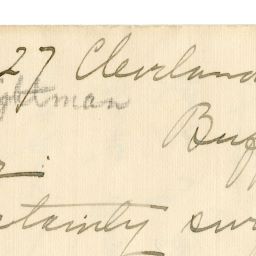 27 Cleveland
ghtman
Buf
r.
rtainly sur